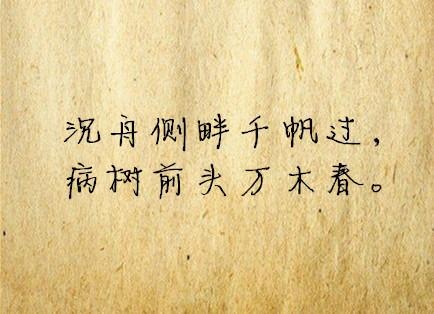 沉舟侧畔千帆过，
病树前头万木春。